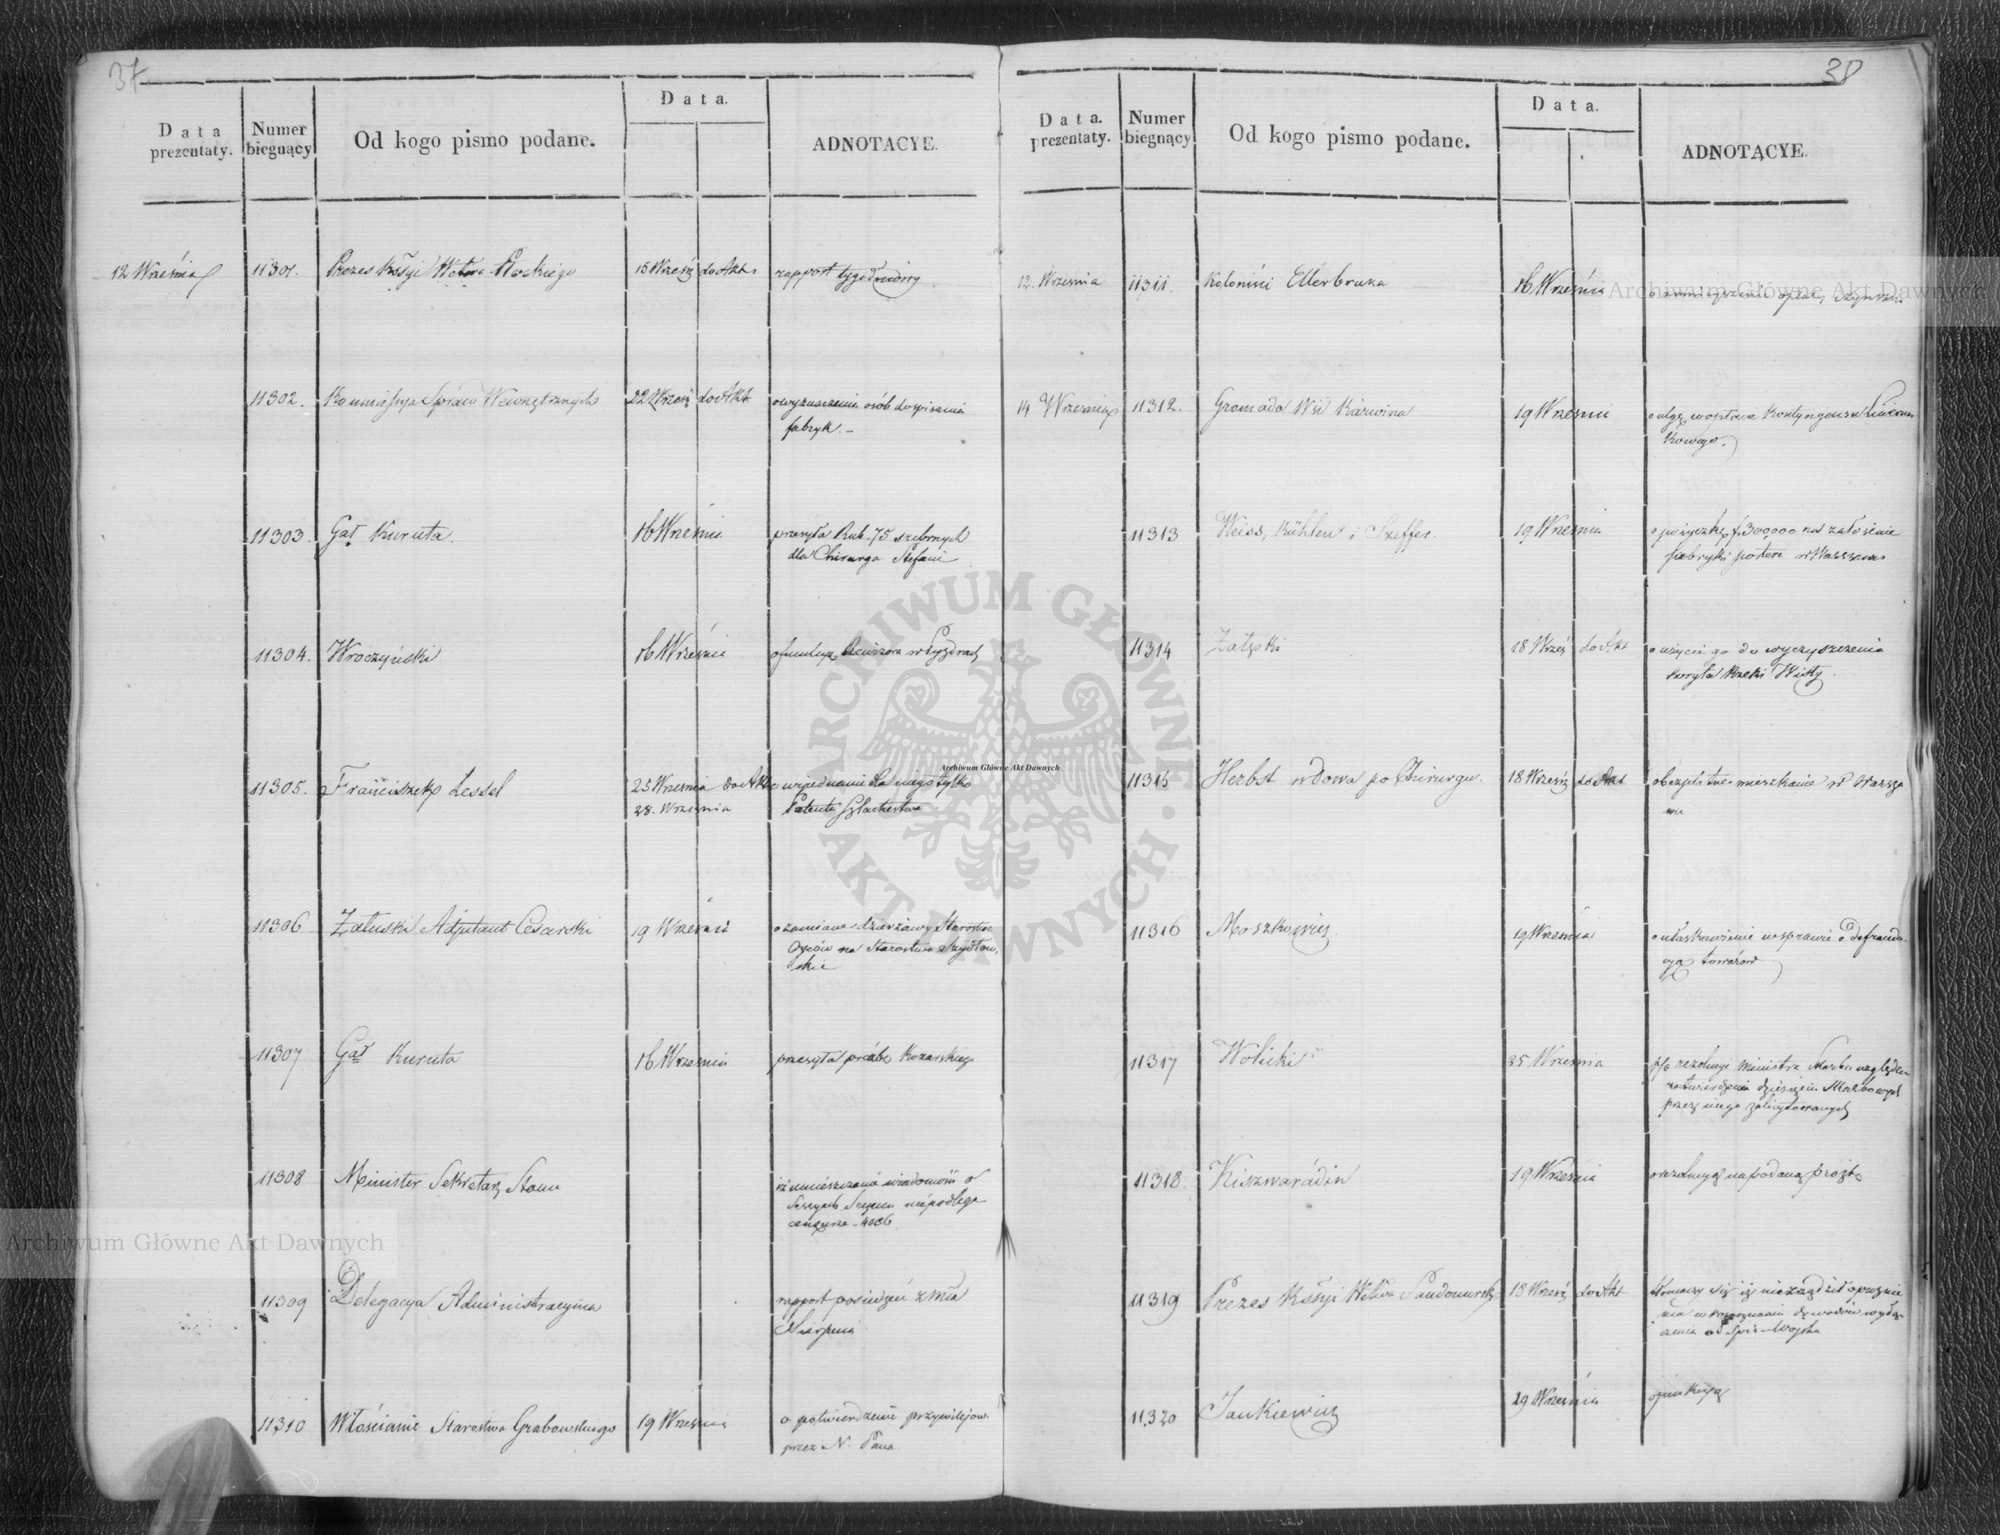 37
Data prezentaty.
Numer biegnący
Od kogo pismo podane.
Data.
ADNOTACYE.
12 Września
11301.
Prezes Kssyi Wdztwa Płockiego
15 Wrześ do Akt
rapport tygodniowy
11302.
Kommissya Spraw Wewnętrznych
22 Wrześ do Akt
o wyznaczenie osób do spisania
fabryk. –
11303.
Gał Kuruta.
16 Września
przesyła Rub. 75 srebrnych
dla Chirurga Stefani
11304.
Wroczyński
16 Września
Rewizora w Pyzdrach
11305.
Franciszek Lessel
25 Wrzesnia do Akt
28. Wrzesnia
dla niego tytułu
Szlachectwa
11306
Załuski Adjutant Cesarski
19 Wrzesnia
o zamianę dzierżawy Starostwa
Oyców na Starostwo Szydłow.
skie
11307
Gał Kuruta
16 Wrzesnia
przesyła prośbę Kozarskiego
11308
Minister Sekretarz Stanu
iż umieszczanie wiadomości o
Seymu niepodlega
cenzurze – 4036
11309
Delegacya Administracyina
rapport posiedzeń z Mca
Sierpnia
11310
Włościanie Starostwa Grabowskiego
19 Wrzesnia
o potwierdzenie przywilejów
przez N. Pana
38
Data. prezentaty.
Numer biegnący
Od kogo pismo podane.
Data.
ADNOTACYE.
12. Wrzesnia
11311.
Koloniści Ellerbruka
16 Września
o zmnieyszenie opłaty czynszu
14 Wrzesnia
11312.
Gromada Wsi Karwina
19 Wrzesnia
o ulgę w opłacie kontyngensu Liwerun
kowego.
11313
Weiss, Kühlen i Szeffer.
19 Wrzesnia
o pożyczkę f. 300,000 na założenie
fabryki w Warszawie
11314
Załęski
18 Wrześ do Akt
o użycie go do wyczyszczenia
koryta Rzeki Wisły.
11315
Herbst wdowa po Chirurgu.
18 Wrześ do Akt
o bezpłatne mieszkanie w Warsza
wie
11316
Moszkowicz.
19 Wrzesnia
o ułaskawienie w sprawie o defrauda-
cyą towarów
11317
Wolicki
25 Wrzesnia
p/o rezolucyi Ministra Skarbu względem
zatwierdzenia
przez niego zalicytowanych
11318.
Kiszwarádin
19 Września
o rezolucyą na podaną prośbę
11319
Prezes Kssyi Wdztwa Sandomirsk
18 Wrześ do Akt
tłomaczy się iż nie zrządził opóźnie
nia w dowodów wyłą
czenia od Spisu Woyska
11320
Jankiewicz
29 Wrzesnia
o pensyą
Archiwum Główne Akt Dawnych
Archiwum Główne Akt Dawnych
Archiwum Główne Akt Dawnych
ARCHIWUM GŁÓWNE AKT DAWNYCH